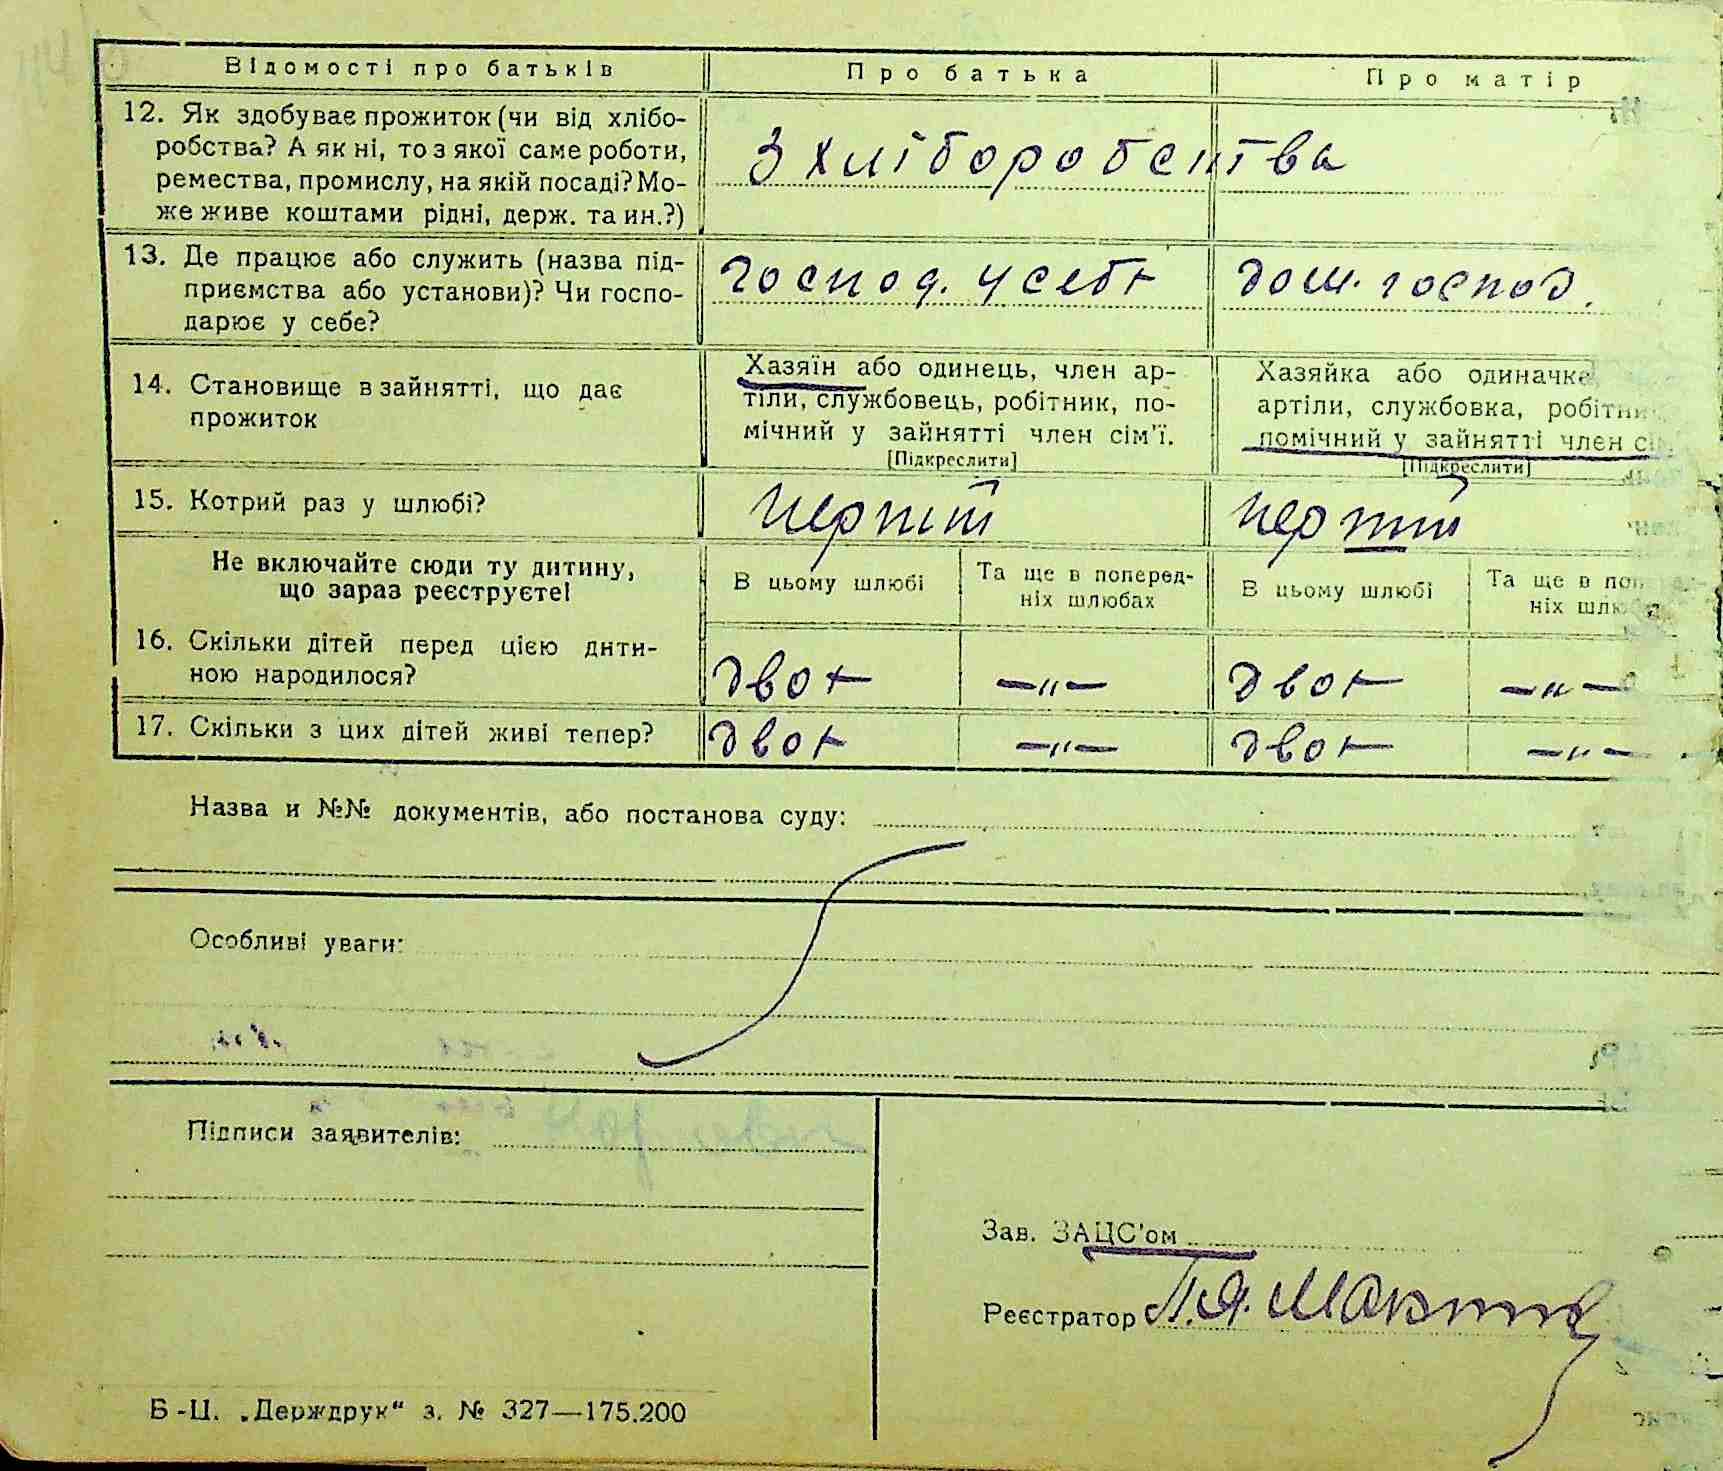 Відомості про батьків Про батька Про матір
12. Як здобуває прожиток (чи від хлібо-
робства? А як ні, то з якої саме роботи,
ремества, промислу, на якій посаді? Мо-
же живе коштами рідні, держ. та ин.?)
З хліборобства
13. Де працює або служить (назва під-
приємства або установи)? Чи госпо-
дарює у себе?
господ. у себе
дом. господ.
14. Становище в зайнятті, що дає
прожиток
Хазяїн або одинець, член ар-
тіли, службовець, робітник, по-
мічний у зайнятті член сім'ї.
[Підкреслити]
Хазяйка або одиначка
артіли, службовка, робітни
помічний у зайнятті член сі
[Підкреслити]
15. Котрий раз у шлюбі?
перший
перший
Не включайте сюди ту дитину,
що зараз реєструєте!
В цьому шлюбі
Та ще в поперед-
ніх шлюбах
В цьому шлюбі
Та ще в поп
ніх шлю
16. Скільки дітей перед цією дити-
ною народилося?
двоє —"— двоє —"—
17. Скільки з цих дітей живі тепер?
двоє —"— двоє —"—
Назва и №№ документів, або постанова суду:
Особливі уваги:
Підписи заявителів:
Зав. ЗАЦС'ом
Реєстратор П.Я.
Б-Ц. „Держдрук“ з. № 327—175.200